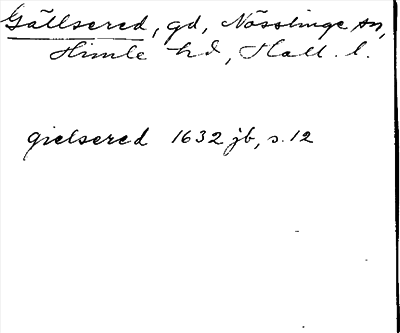 Gällsered, gd, Nösslinge sn,
Himle hd, Hall. l.
gielsered 1632 jb, s. 12